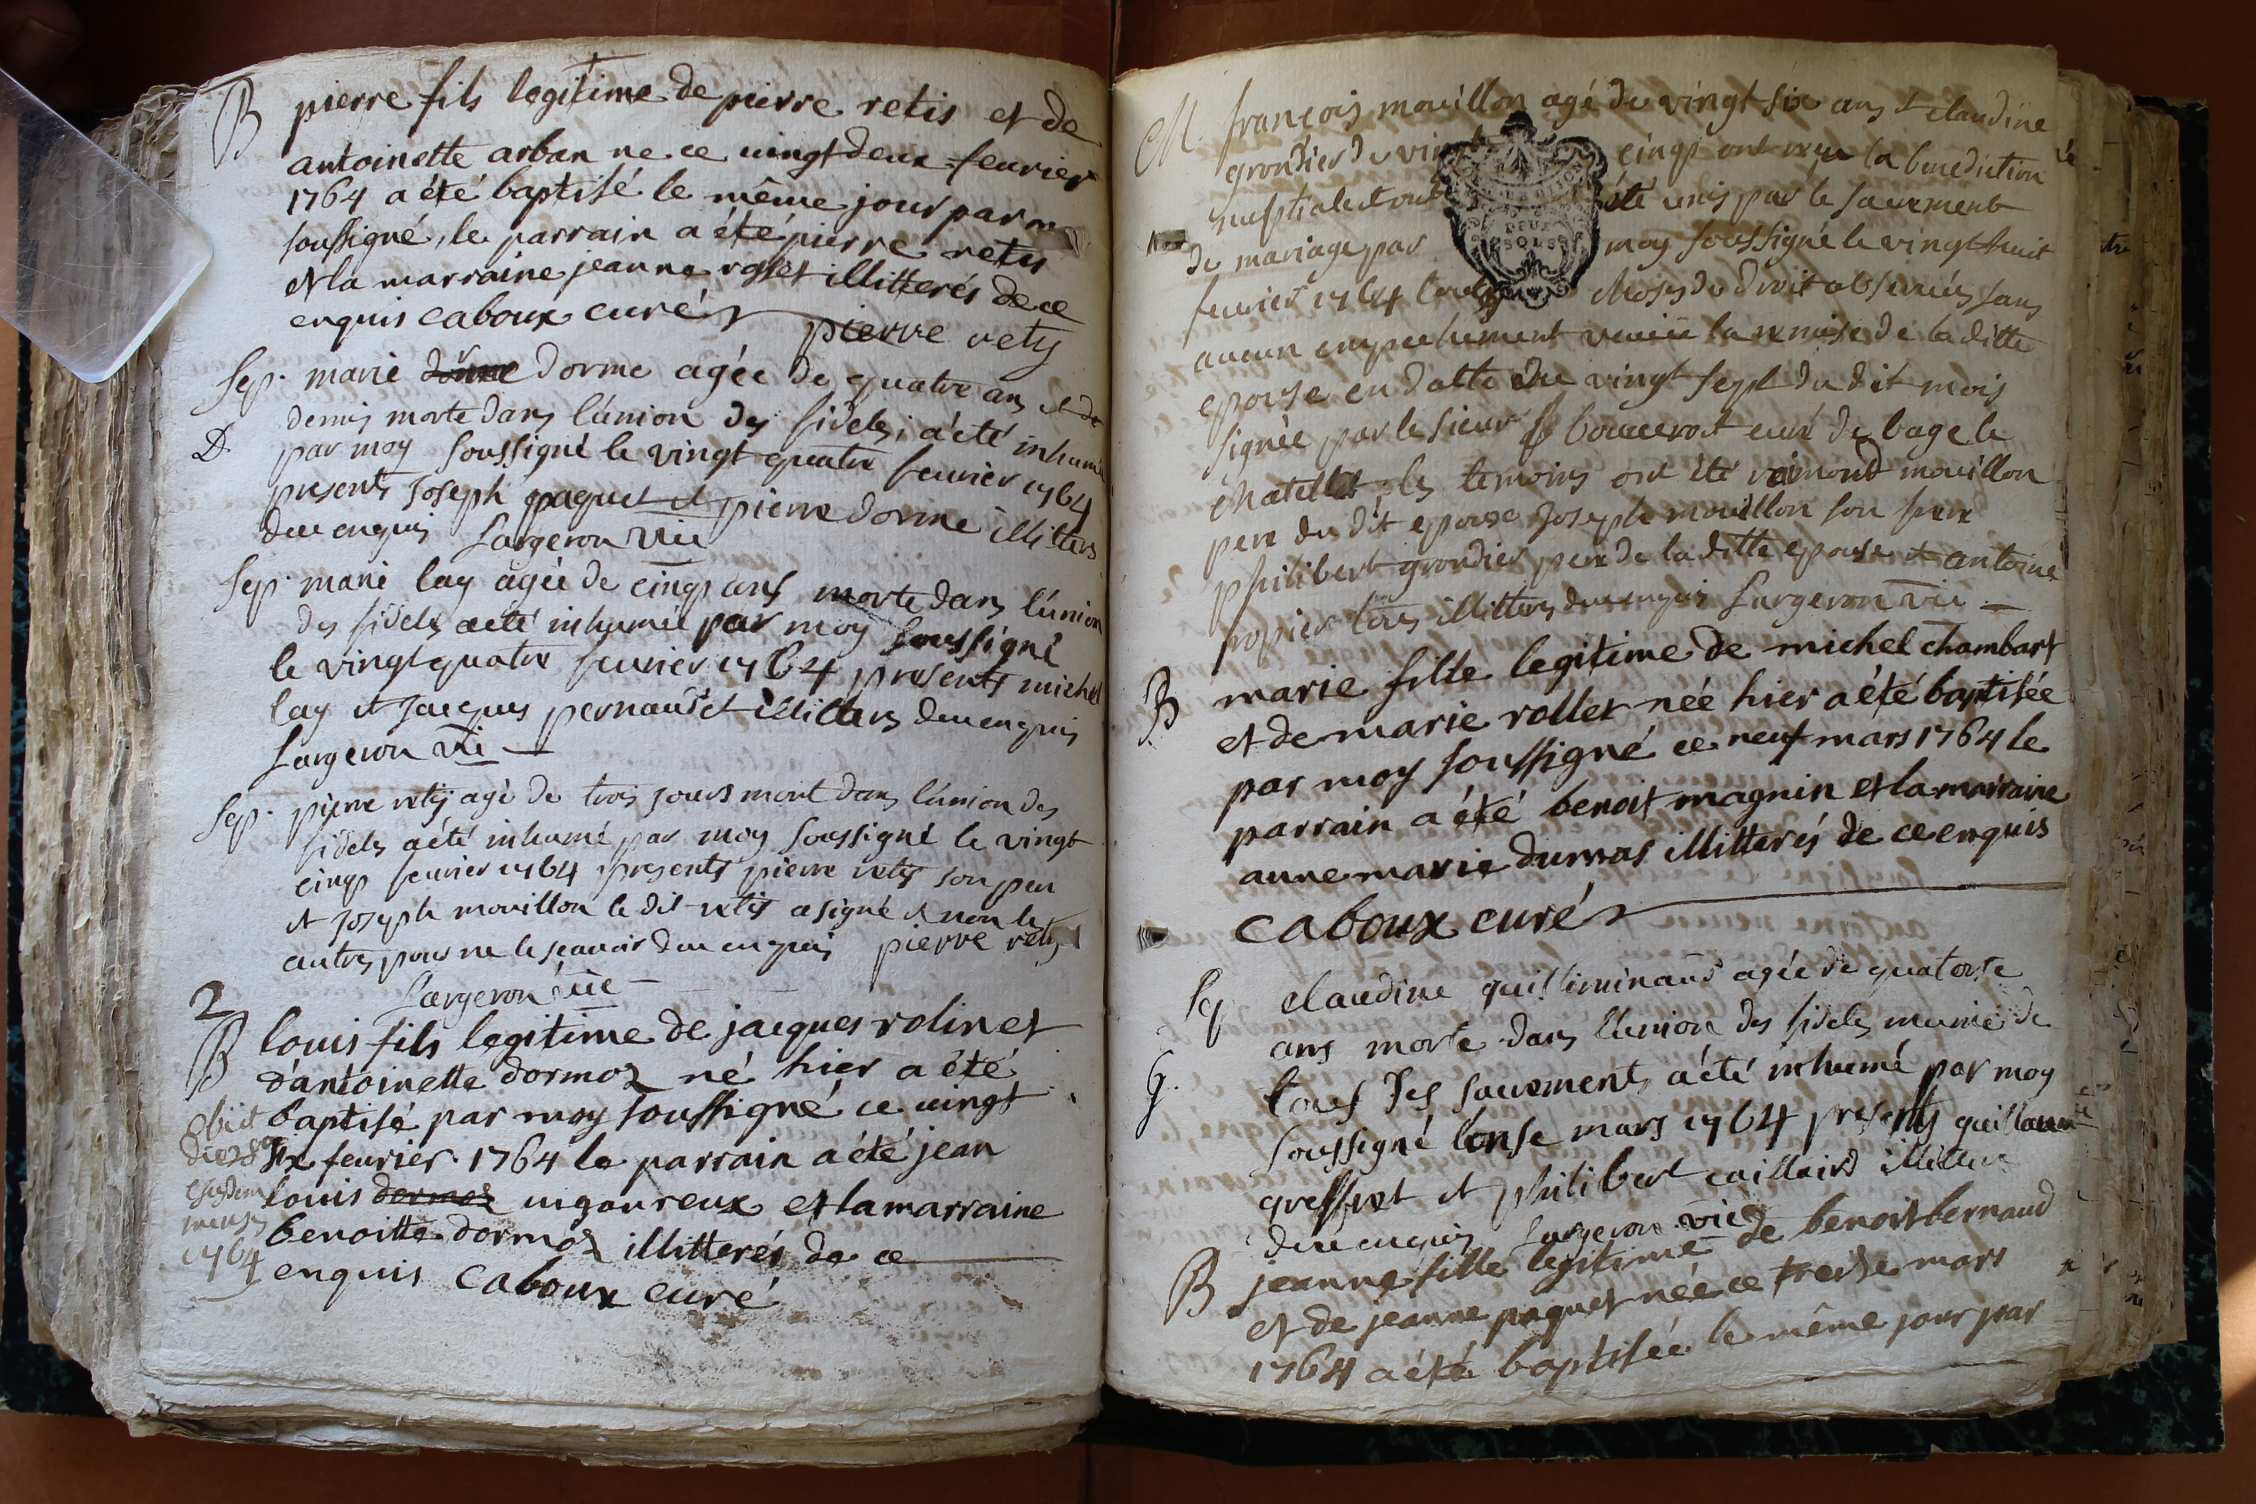 B pierre fils legitime de pierre retis et de
antoinette arban ne ce uingt deux feurier
1764 a été baptisé le même jour par m
soussigné, le parrain a été pierre retis
et la marraine jeanne rollet illitterés de ce
enquis caboux curé
pierre rety
Sep. marie donne dorme agée de quatre ans et de
demis morte dans l'union des fidels, a été inhumée
D. par moy soussigné le vingt quatre feurier 1764
presents Joseph paquet et pierre dorme illitters
deu enquis Largeron vic
Sep. marie lay agée de cinq ans morte dans l'union
des fidels a été inhumée par moy soussigné
le vingt quatre feurier 1764 presents michel
lay et Jacques pernaudet illitters deu enquis
Largeron vic
Sep. pierre retÿ agé de trois jours mort dans l'union des
fidels a été inhumé par moy soussigné le vingt
cinq feurier 1764 presents pierre retÿ son pere
et Joseph mouillon le dit retis a signé et non les
autres pour ne le scauoir deu enquis pierre rety
Largeron vic
2
B louis fils legitime de jacques rolin et
d'antoinette dormoz né hier a été
baptisé par moy soussigné ce uingt
six feurier 1764 le parrain a été jean
louis dormoz uigoureux et la marraine
benoitte dormoz illitterés de ce
enquis caboux curé
obiit
die 28
ejusdem
mensis
1764
M. françois mouillon agé de vingt six ans et claudine
grondier de vingt cinq ont reçu la benediction
nuptiale et ont été unis par le sacrement
de mariage par moy soussigné le vingt huit
feurier 1764 toutes choses de droit obseruées sans
aucun empechement veüe la remise de la ditte
epouse en datte du vingt sept du dit mois
signée par le sieur bouuerot curé de bage le
chatel les temoins ont été raimond mouillon
pere du dit epouse Joseph mouillon son frere
philibert grondier pere de la ditte epouse et antoine
popier tous illitters deu enquis Largeron vic
B marie fille legitime de michel chambart
et de marie rollet née hier a été baptisée
par moy soussigné ce neuf mars 1764 le
parrain a été benoit magnin et la marraine
anne marie dumas illitterés de ce enquis
caboux curé
Sep claudine guilliminaud agée de quatorse
ans morte dans l'union des fidels munie de
G. tous les sacrements a été inhumé par moy
soussigné l'onse mars 1764 presents guillaume
greffet et philibert caillaird illitters
deu enquis Largeron vic
B jeanne fille legitime de benoit bernaud
et de jeanne paquet née ce treise mars
1764 a été baptisée le même jour par